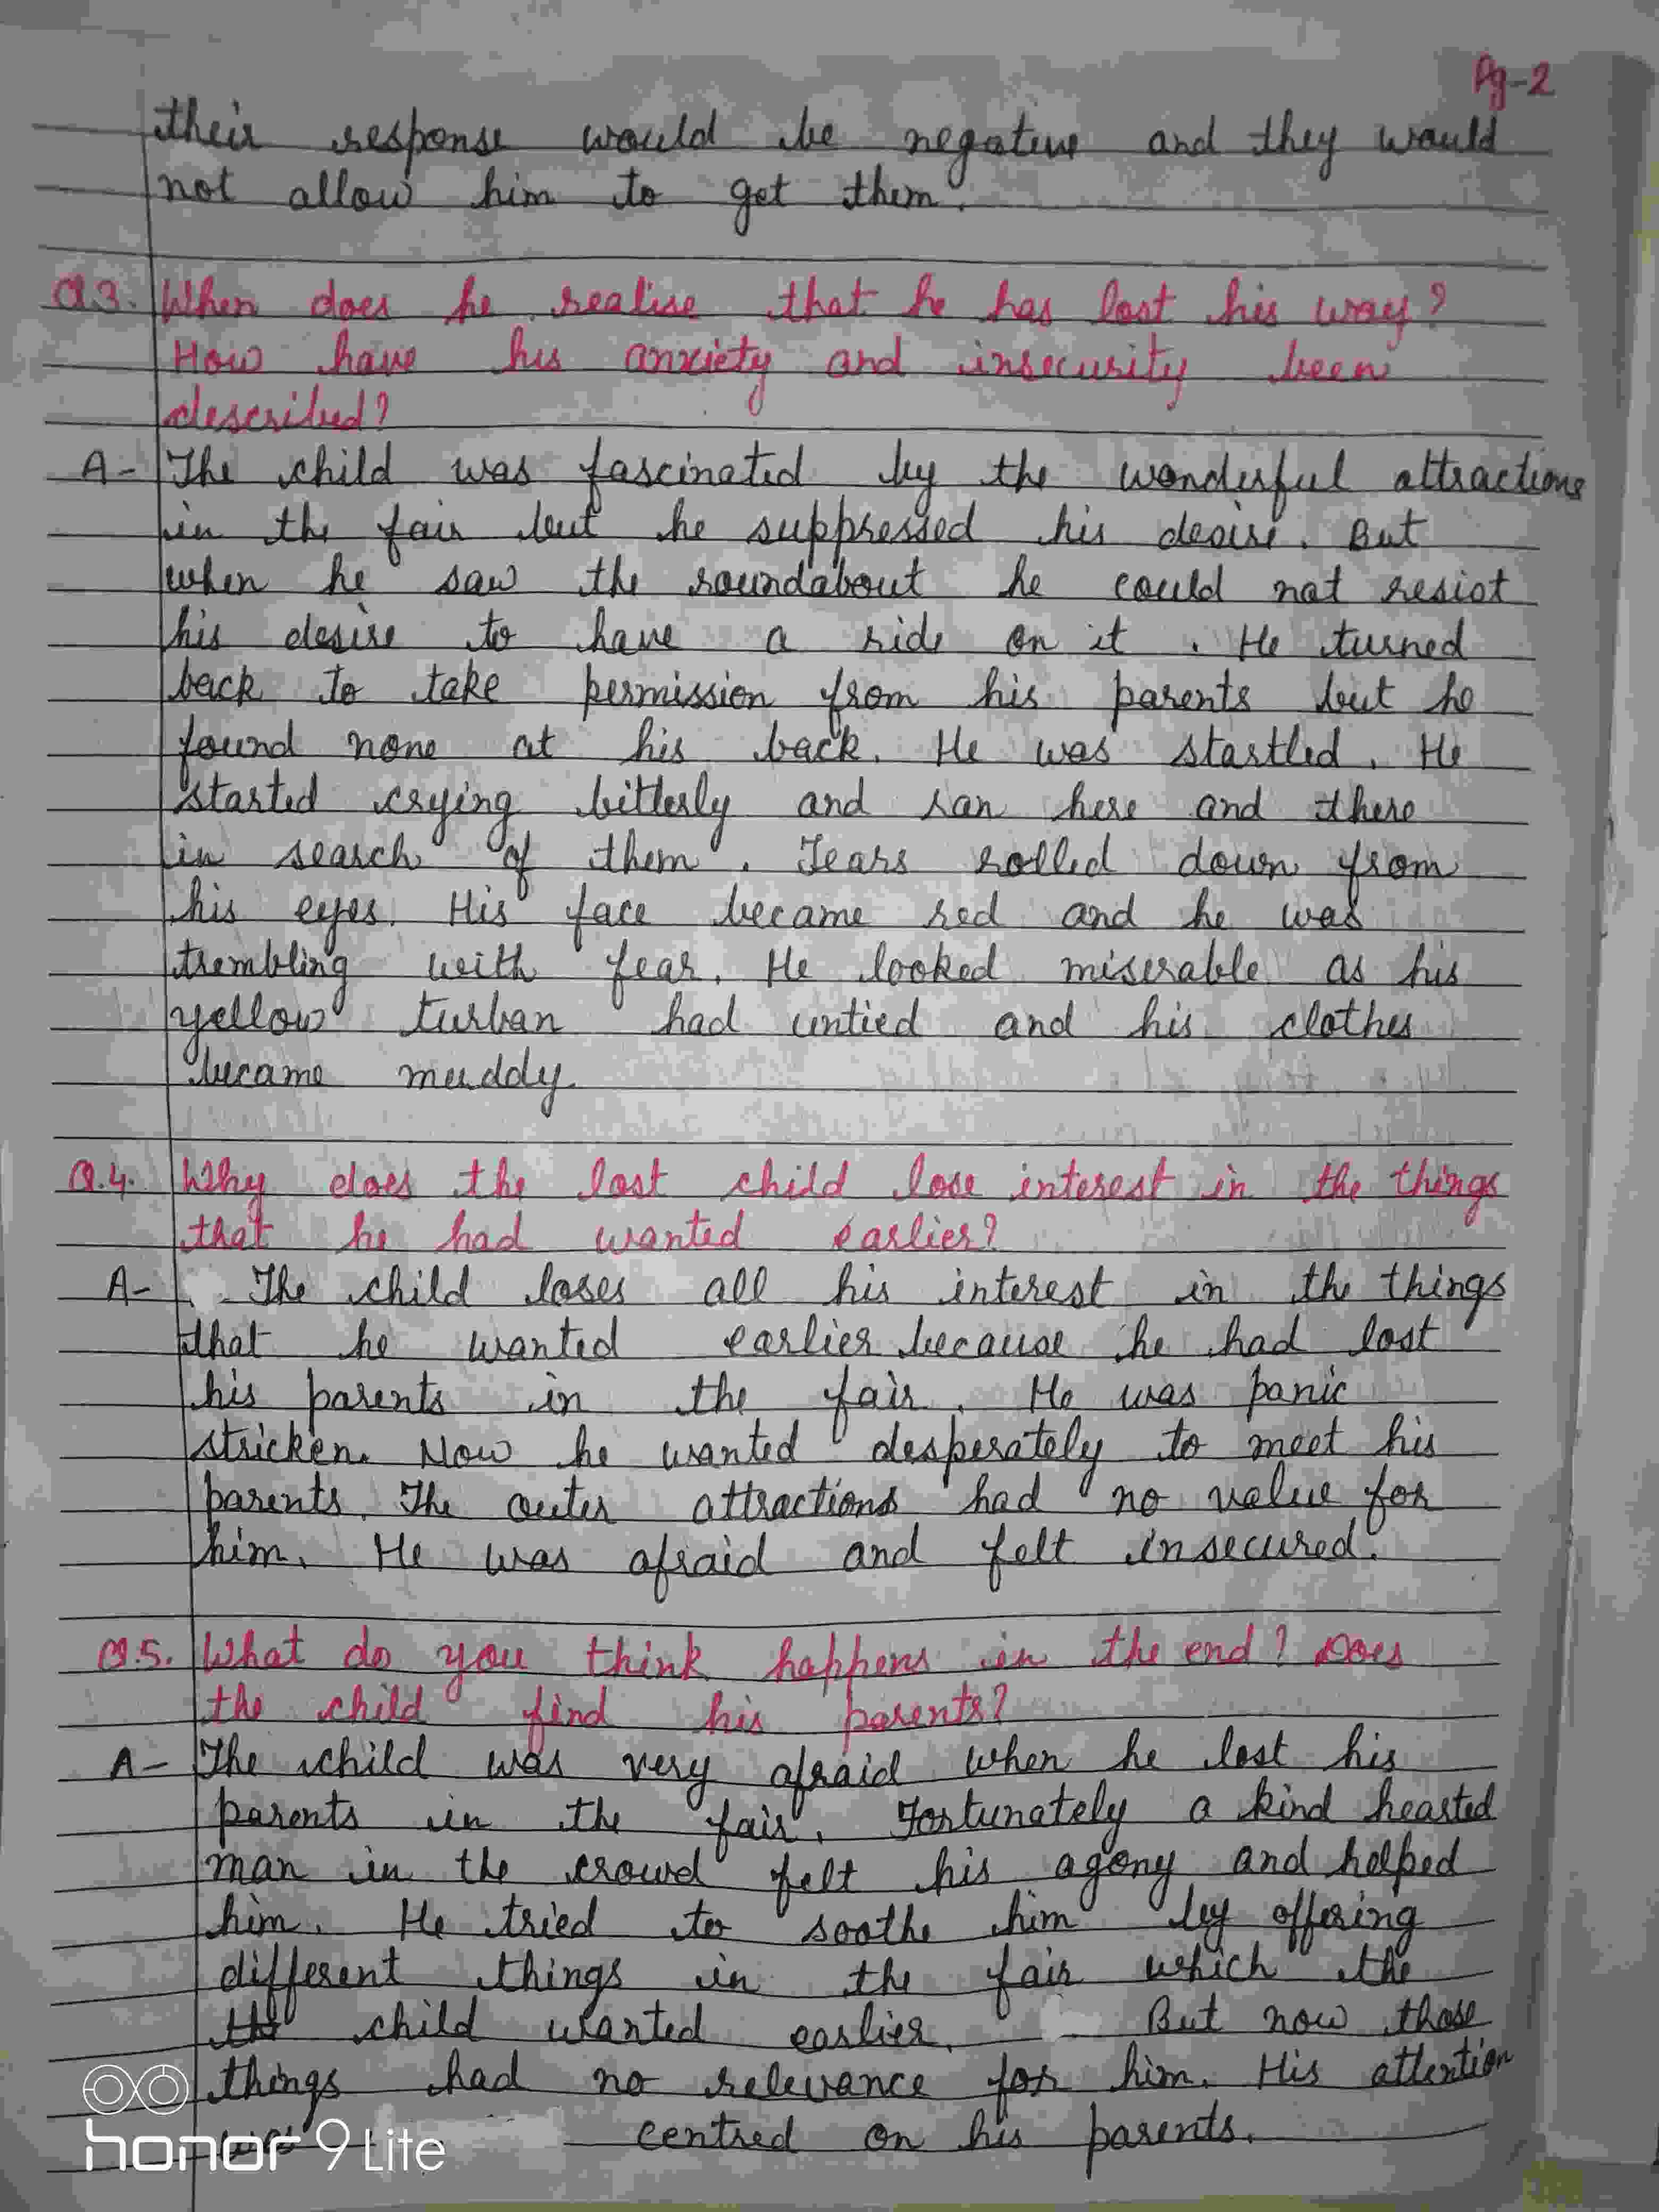 Pg-2
their response would be negative and they would
not allow him to get them.
Q3. When does he realise that he has lost his way?
How have his anxiety and insecurity been
described?
A- The child was fascinated by the wonderful attractions
in the fair but he suppressed his desire. But
when he saw the roundabout he could not resist
his desire to have a ride on it. He turned
back to take permission from his parents but he
found none at his back. He was startled. He
started crying bitterly and ran here and there
in search of them. Tears rolled down from
his eyes. His face became red and he was
trembling with fear. He looked miserable as his
yellow turban had untied and his clothes
became muddy.
Q.4. Why does the lost child lose interest in the things
that he had wanted earlier?
A- The child loses all his interest in the things
that he wanted earlier because he had lost
his parents in the fair. He was panic
stricken. Now he wanted desperately to meet his
parents. The outer attractions had no value for
him. He was afraid and felt insecured.
Q.5. What do you think happens in the end? Does
the child find his parents?
A- The child was very afraid when he lost his
parents in the fair. Fortunately a kind hearted
man in the crowd felt his agony and helped
him. He tried to soothe him by offering
different things in the fair which the
the child wanted earlier. But now those
things had no relevance for him. His attention
was centred on his parents.
honor 9 Lite